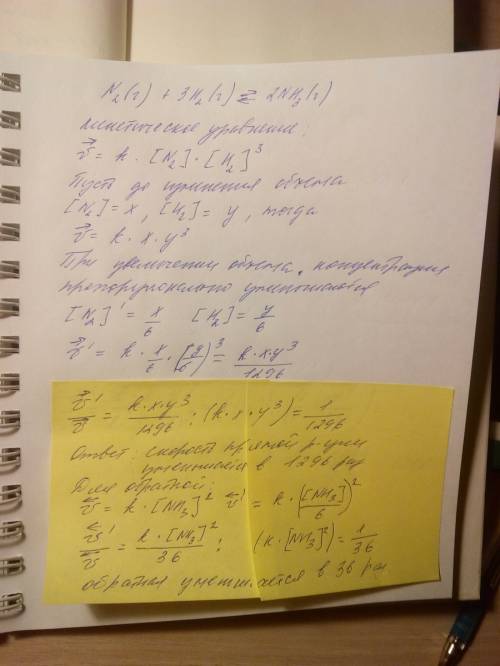 N₂(г) + 3H₂(г) ⇄ 2NH₃(г)
кинетическое уравнение:
v⃗ = k · [N₂] · [H₂]³
Пусть до изменения объема
[N₂] = x, [H₂] = y, тогда
v⃗ = k · x · y³
При увеличении объема, концентрация
пропорционально уменьшается
[N₂]' = x/6 [H₂] = y/6
v⃗' = k · x/6 · (y/6)³ = k·x·y³/1296
v⃗'/v⃗ = k·x·y³/1296 : (k·x·y³) = 1/1296
Ответ: скорость прямой р-ции
уменьшится в 1296 раз
Для обратной:
v⃖ = k·[NH₃]² v⃖' = k·([NH₃]/6)²
v⃖'/v⃖ = k·[NH₃]²/36 : (k·[NH₃]²) = 1/36
обратная уменьшается в 36 раз